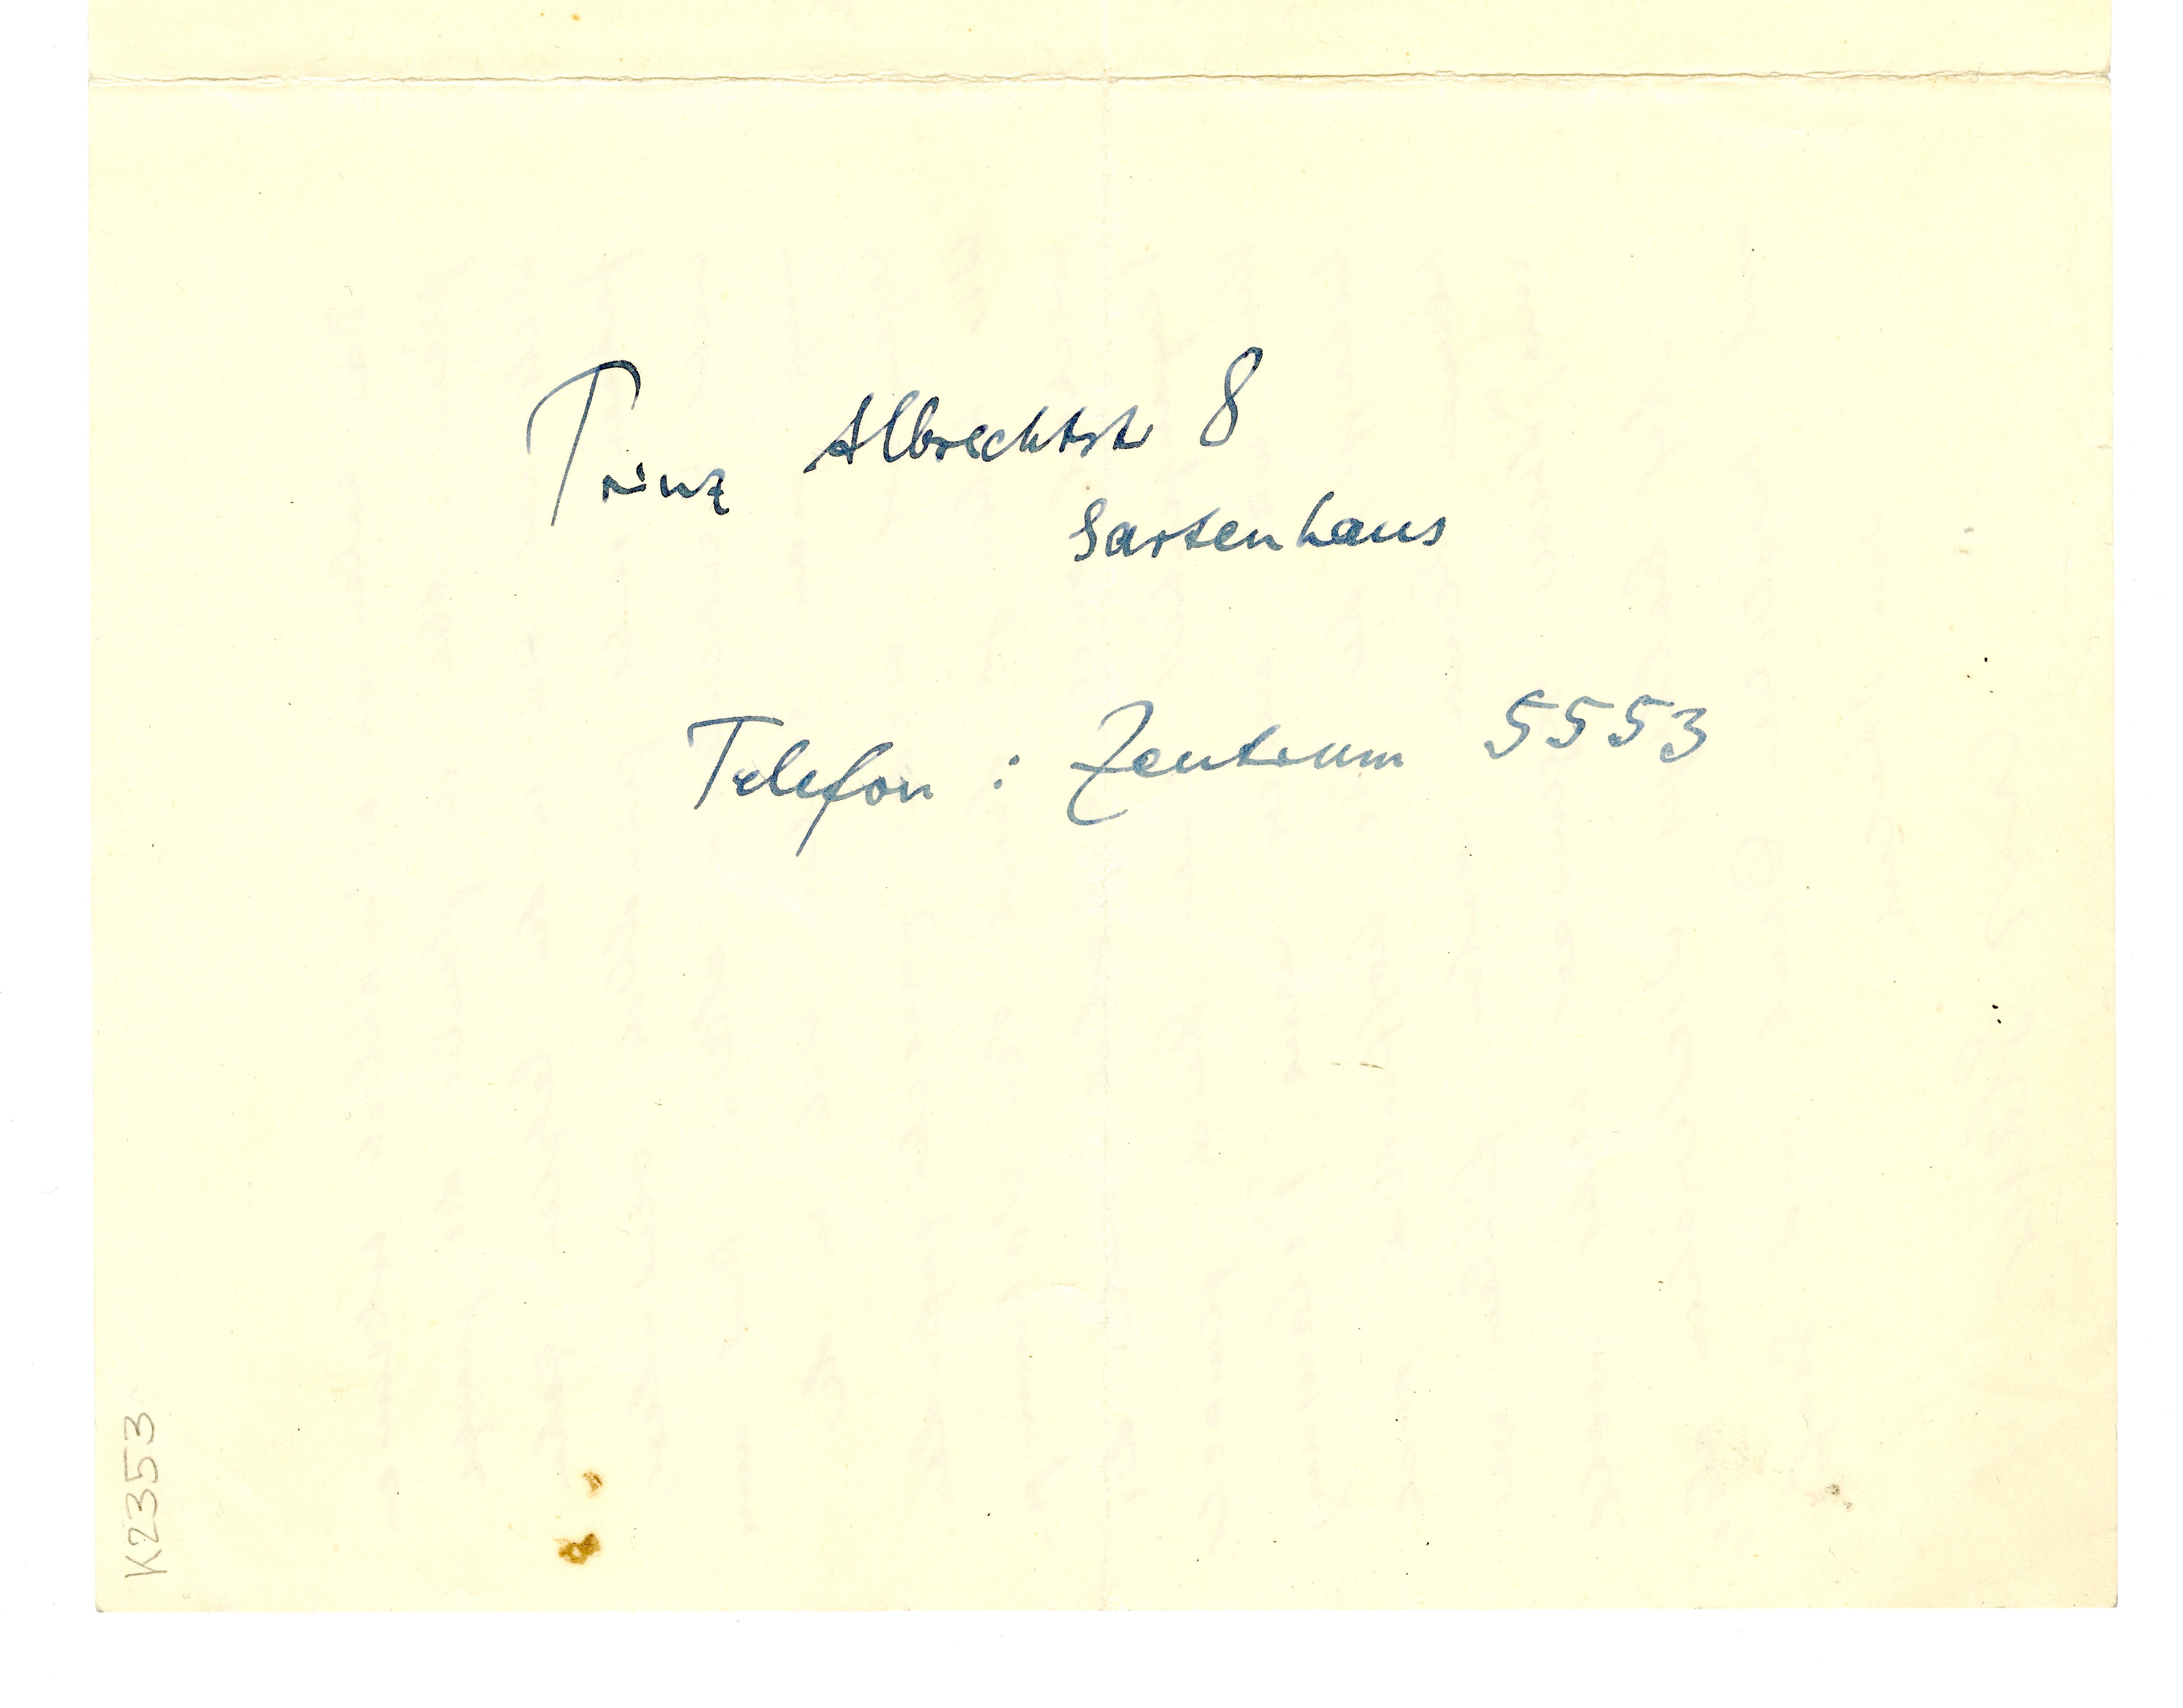 Prinz Albrechtstr 8
Gartenhaus
Telefon : Zentrum 5553
K2353